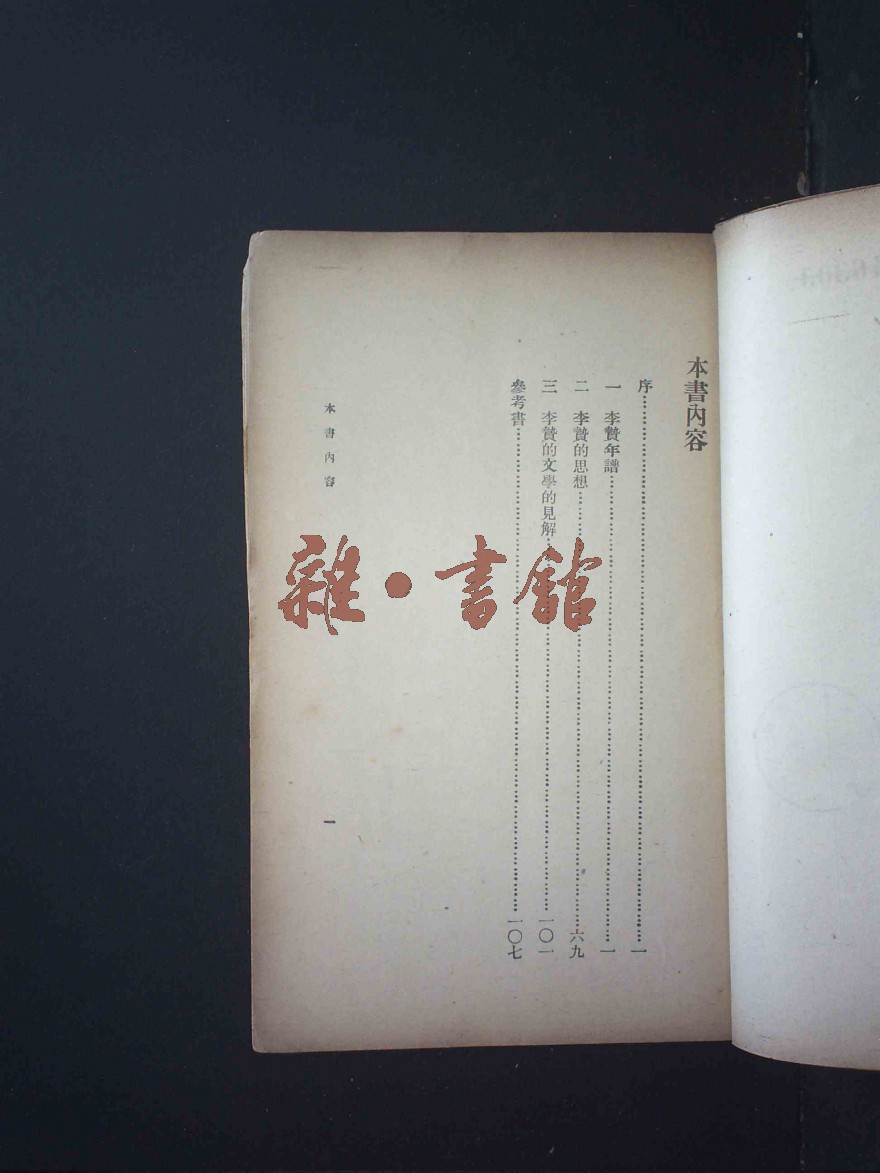 本書內容
序……一
一 李贄年譜……一
二 李贄的思想……六九
三 李贄的文學的見解……一〇一
參考書……一〇七
本書內容
一
雜·書館